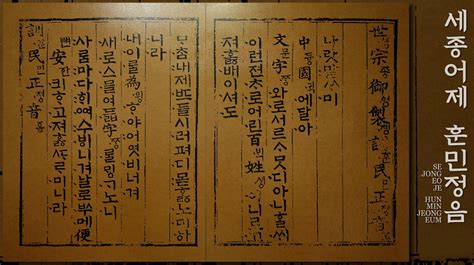 세종어제 훈민정음
SE
JONG
EO
JE
HUN
MIN
JEONG
EUM
世宗御製訓民正音
나랏말ᄊᆞ미
中듕國귁에달아
文문字ᄍᆞᆼ와로서르ᄉᆞᄆᆞᆺ디아니ᄒᆞᆯᄊᆡ
이런젼ᄎᆞ로어린百ᄇᆡᆨ姓셩이니르고
져홇배이셔도
ᄆᆞᄎᆞᆷ내제ᄠᅳ들시러펴디몯ᄒᆞᇙ노미하
니라
내이ᄅᆞᆯ為윙ᄒᆞ야어엿비너겨
새로스믈여듧字ᄍᆞᆼᄅᆞᆯᄆᆡᇰᄀᆞ노니
사ᄅᆞᆷ마다ᄒᆡᅇᅧ수ᄫᅵ니겨날로ᄡᅮ메便
뼌安ᅙᅡᆫ킈ᄒᆞ고져ᄒᆞᇙᄯᆞᄅᆞ미니라
訓民正音